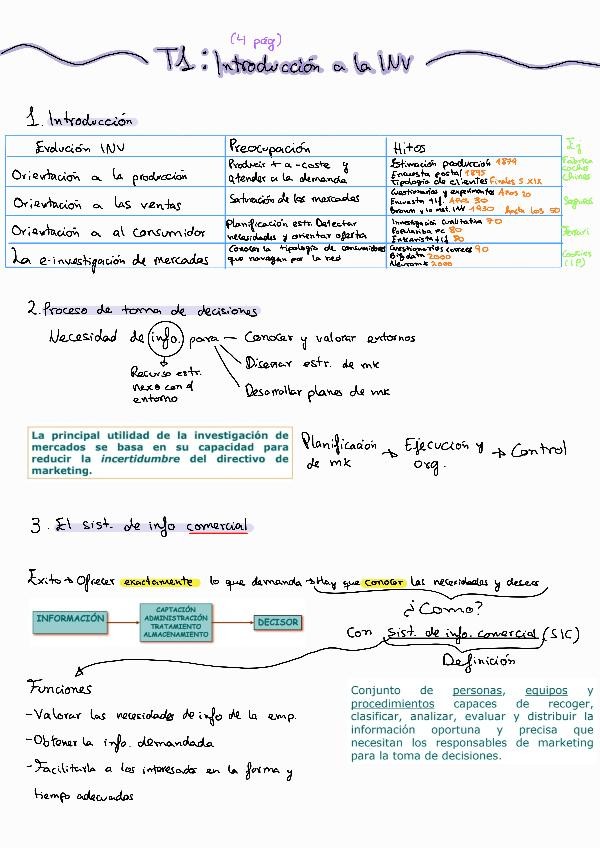 (4 pág)
T1: Introducción a la INV
1. Introducción
Evolución INV Preocupación Hitos Ej
Orientación a la producción Producir + a - coste y atender a la demanda Estimación producción 1879
Encuesta postal 1895
Tipología de clientes Finales S XIX
Fábrica coches chinos
Orientación a las ventas Saturación de los mercados Cuestionarios y experimentos Años 20
Encuesta tlf. Años 30
Brown y la inst. INV 1930 hasta los 50
Seguros
Orientación a al consumidor Planificación estr. Detectar necesidades y orientar oferta Investigación cualitativa 70
80
Encuesta tlf 80
Ferrari
La e-investigación de mercados Conocer la tipología de consumidores que navegan por la red Cuestionarios correos 90
Big data 2000
Neuromk 2000
Cookies
(IP)
2. Proceso de toma de decisiones
Necesidad de info. para — Conocer y valorar entornos
Diseñar estr. de mk
Desarrollar planes de mk
Recurso estr.
nexo con el
entorno
La principal utilidad de la investigación de
mercados se basa en su capacidad para
reducir la incertidumbre del directivo de
marketing.
Planificación de mk → Ejecución y org. → Control
3. El sist. de info comercial
Éxito → Ofrecer exactamente lo que demanda → Hay que conocer las necesidades y deseos
¿Cómo?
INFORMACIÓN
CAPTACIÓN
ADMINISTRACIÓN
TRATAMIENTO
ALMACENAMIENTO
DECISOR
Con sist. de info. comercial (SIC)
Definición
Funciones
- Valorar las necesidades de info de la emp.
- Obtener la info. demandada
- Facilitarla a los interesados en la forma y
tiempo adecuados
Conjunto de personas, equipos y
procedimientos capaces de recoger,
clasificar, analizar, evaluar y distribuir la
información oportuna y precisa que
necesitan los responsables de marketing
para la toma de decisiones.